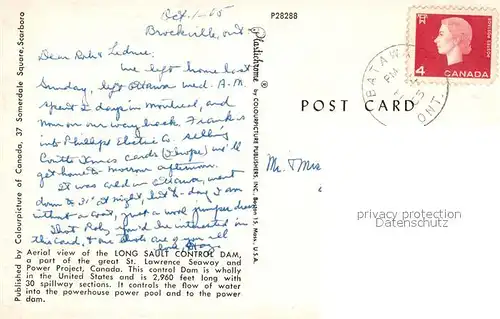 Oct. 1-65
Brockville, Ont.
Dear Rob &
We left home last
Sunday, left Ottawa Wed. A.M.
spent 2 days in Montreal, and
now on our way back. Frank is
into Phillips Electric Co. selling
cards (I hope) we'll
get home to morrow afternoon.
It was cold in Ottawa, went
down to 31° at night, but to-day I am
without a coat, just a wool jumper dress.
Thot Rob, you'd be interested in
this card, & are you all
Aerial view of the LONG SAULT CONTROL DAM,
a part of the great St. Lawrence Seaway and
Power Project, Canada. This control Dam is wholly
in the United States and is 2,960 feet long with
30 spillway sections. It controls the flow of water
into the powerhouse power pool and to the power
dam.
Published by Colourpicture of Canada, 37 Somerdale Square, Scarboro
P28288
Plastichrome ®
by COLOURPICTURE PUBLISHERS, INC., Boston 15, Mass., U.S.A.
POST CARD
BATAWA
PM
ONT.
4
CANADA
POSTES POSTAGE
Mr. Mrs
privacy protection
Datenschutz